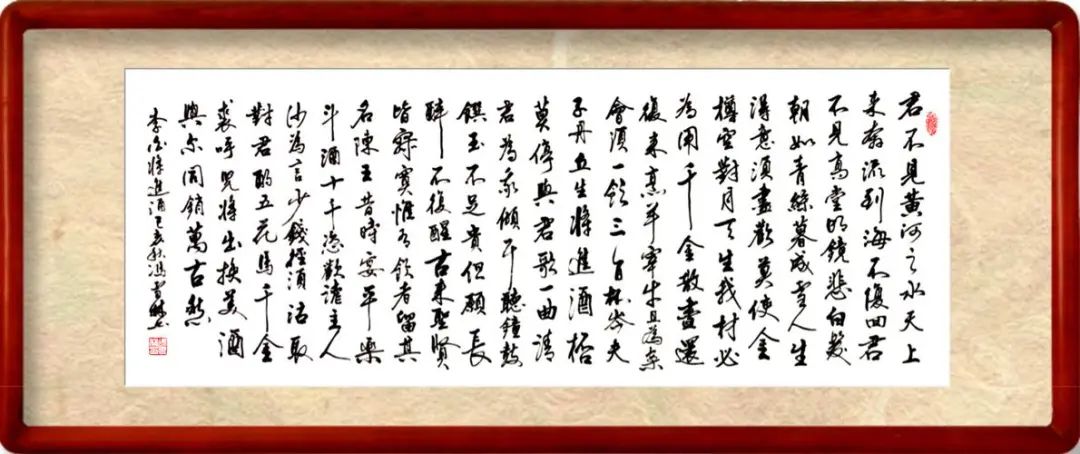 君不見黄河之水天上
来奔流到海不復回君
不見高堂明鏡悲白髮
朝如青絲暮成雪人生
得意須盡歡莫使金
樽空對月天生我材必
有用千金散盡還
復来烹羊宰牛且為樂
會須一飲三百杯岑夫
子丹丘生將進酒杯
莫停與君歌一曲請
君為我傾耳聽鐘鼓
饌玉不足貴但願長
醉不復醒古来聖賢
皆寂寞惟有飲者留其
名陳王昔時宴平樂
斗酒十千恣歡謔主人
何為言少錢徑須沽取
對君酌五花馬千金
裘呼兒將出換美酒
與尔同銷萬古愁
李白將進酒己亥秋馮雪